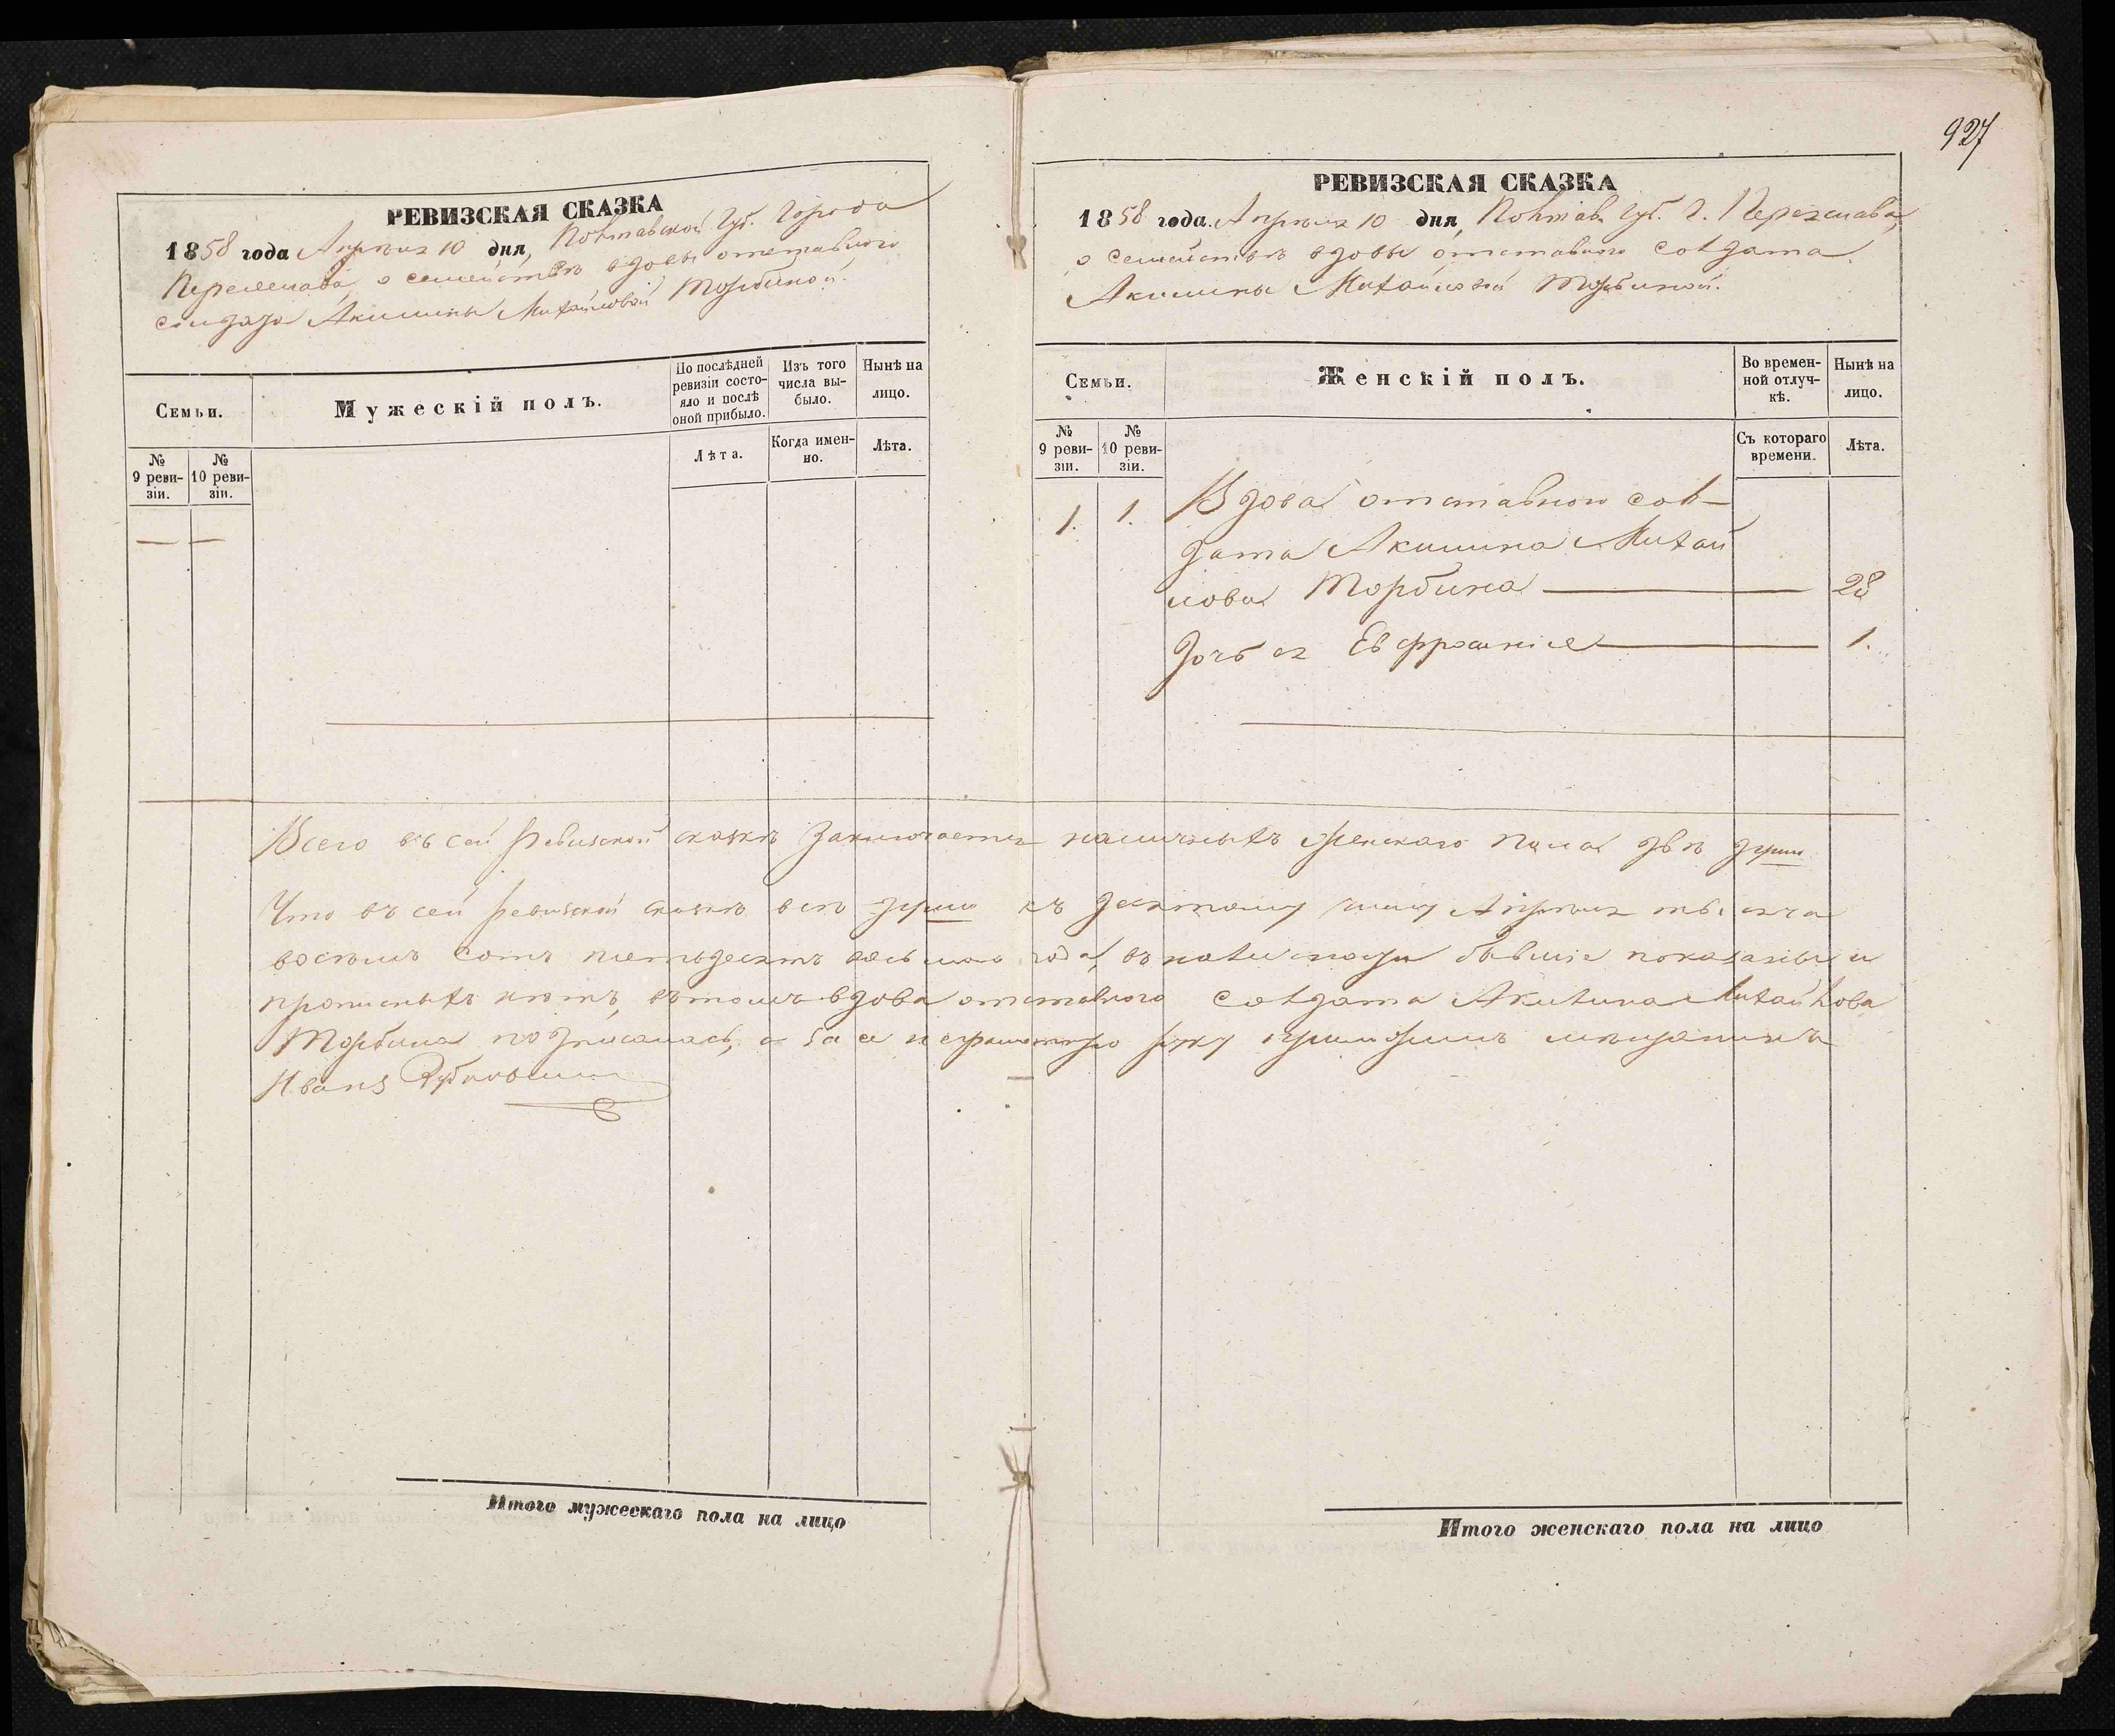 927
РЕВИЗСКАЯ СКАЗКА
1858 года Апрѣля 10 дня, Полтавской Губ. Города
Переяслава, о семействѣ вдовы отставного
солдата Акилины Михайловой Торбиной.
Семьи.
Мужескій полъ.
По послѣдней ревизіи состояло и послѣ оной прибыло.
Изъ того числа выбыло.
Нынѣ на лицо.
№ 9 ревизіи.
№ 10 ревизіи.
Лѣта.
Когда именно.
Лѣта.
РЕВИЗСКАЯ СКАЗКА
1858 года. Апрѣля 10 дня, Полтав. Губ. Г. Переяслава,
о семействѣ вдовы отставного солдата
Акилины Михайловой Торбиной.
Семьи.
Женскій полъ.
Во временной отлучкѣ.
Нынѣ на лицо.
№ 9 ревизіи.
№ 10 ревизіи.
Съ котораго времени.
Лѣта.
1. 1. Вдова отставного сол-
дата Акилина Михай
лова Торбина 28
Дочь ея Евфросинія 1.
Всего въ сей Ревизской сказкѣ заключается наличныхъ женскаго пола двѣ души.
Что въ сей ревизской сказкѣ всѣ души къ десятому числу Апрѣля тысяча
восемь сотъ пятьдесятъ восьмого года, въ наличности бывшіе показаны и
прописныхъ нѣтъ, въ томъ вдова отставного солдата Акилина Михайлова
Торбина подписалась, а за ея неграмотную руку приложилъ мѣщанинъ
Иванъ
Итого мужескаго пола на лицо
Итого женскаго пола на лицо